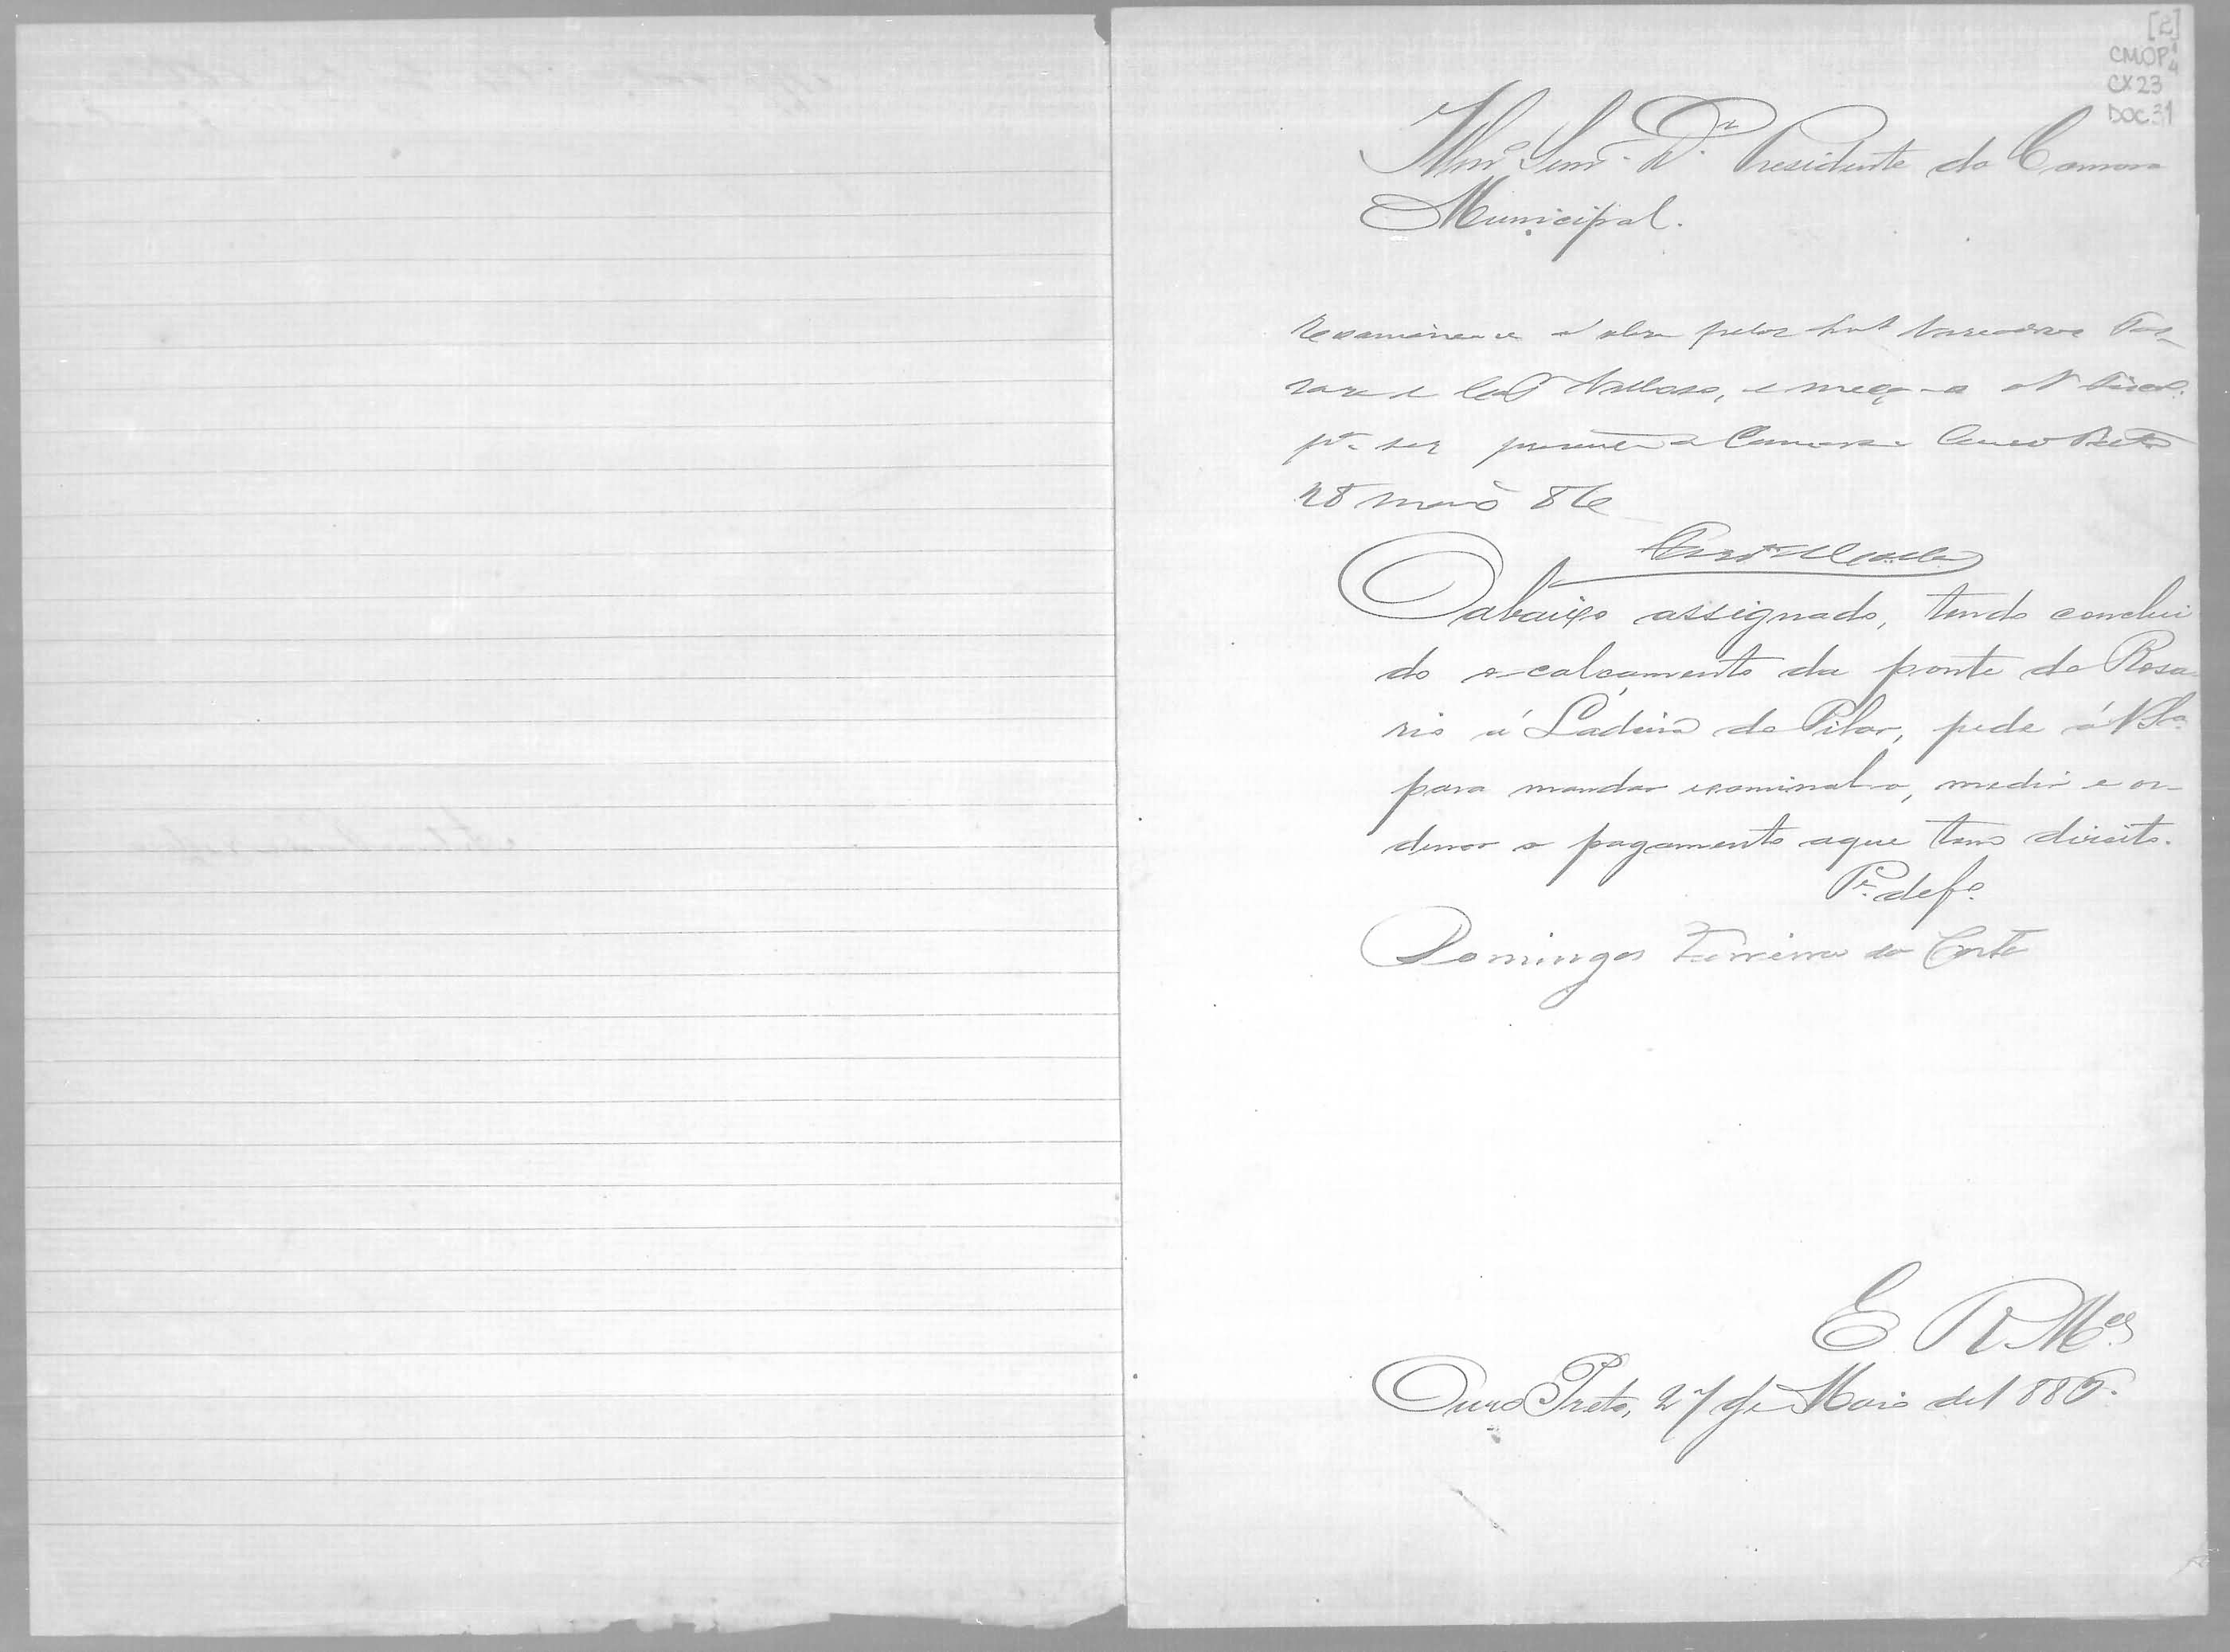 [2]
CMOP
CX 23
DOC 31
Illmo Senr. Dr. Presidente da Camara
Municipal.
a obra pelos
e Vellozo, e meça-a o Fiscal
pa. ser presente a Camara Ouro Preto
28 maio 86
O abaixo assignado, tendo conclui
do o calçamento da ponte do Rosa
rio á Ladeira do Pilar, pede á V Sa.
para mandar examinal-o, medir e or-
denar o pagamento aque tem direito.
P. defo.
Domingos Ferreira da Costa
E R Mce
Ouro Preto, 27 de Maio de 1886.